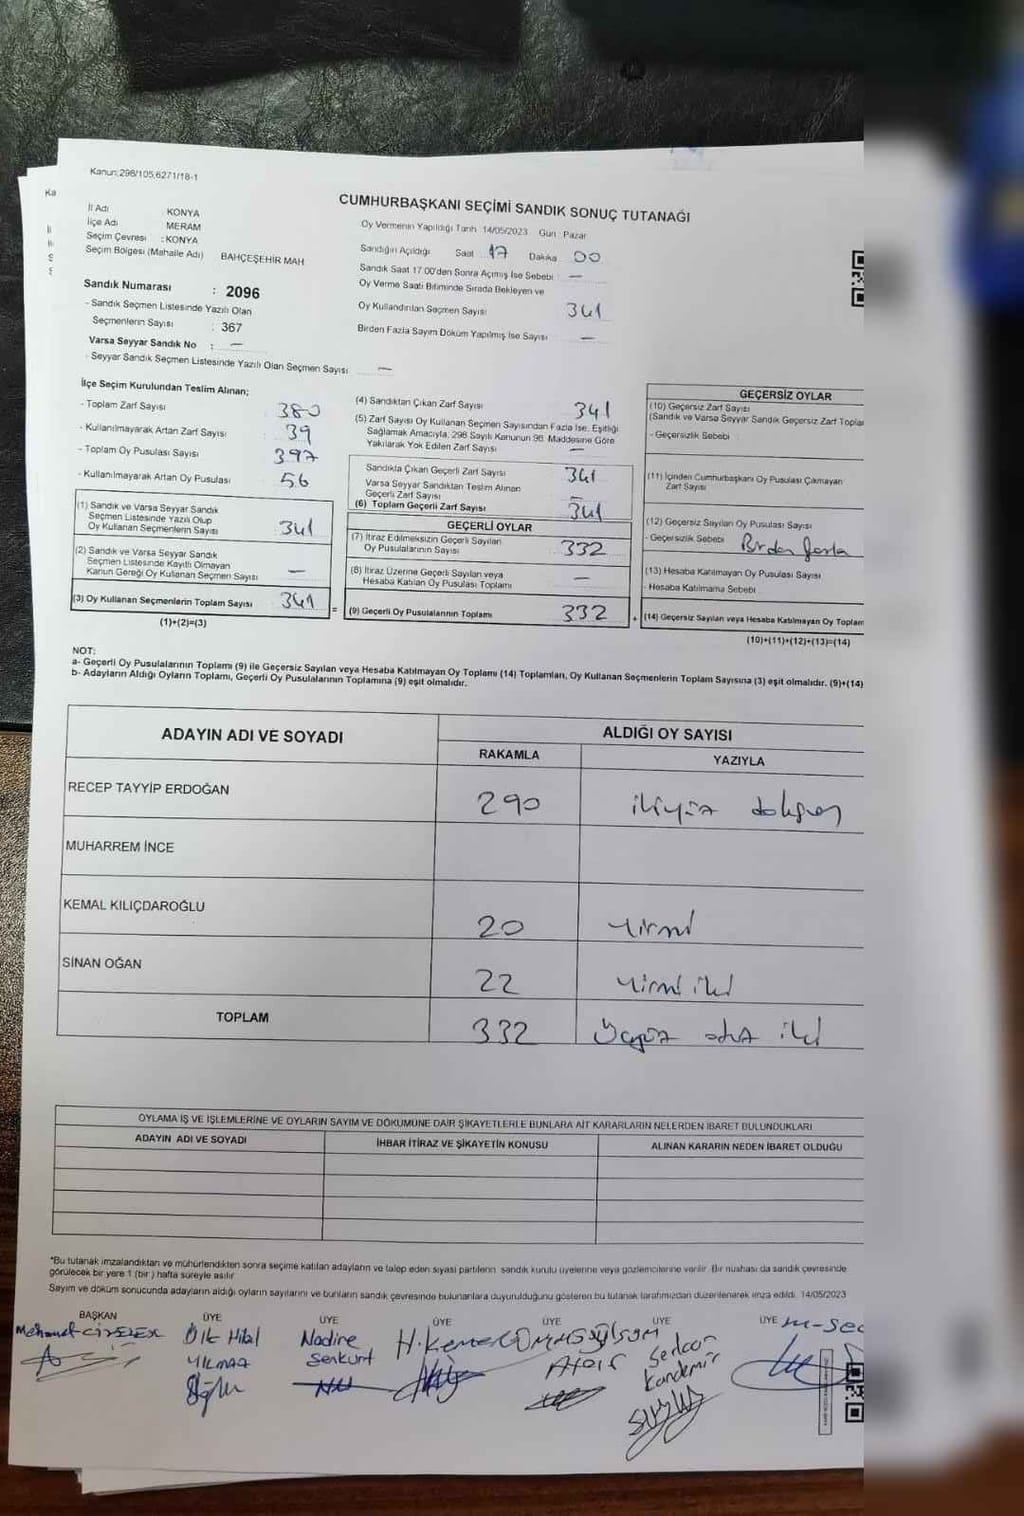 Kanun:298/105,6271/18-1
CUMHURBAŞKANI SEÇİMİ SANDIK SONUÇ TUTANAĞI
İl Adı KONYA
İlçe Adı MERAM
Seçim Çevresi : KONYA
Seçim Bölgesi (Mahalle Adı) BAHÇEŞEHİR MAH
Oy Vermenin Yapıldığı Tarih 14/05/2023 Gün : Pazar
Sandığın Açıldığı Saat 17 Dakika 00
Sandık Saat 17.00'den Sonra Açılmış İse Sebebi : —
Oy Verme Saati Bitiminde Sırada Bekleyen ve
Oy Kullandırılan Seçmen Sayısı 341
Birden Fazla Sayım Döküm Yapılmış İse Sayısı —
Sandık Numarası : 2096
- Sandık Seçmen Listesinde Yazılı Olan
Seçmenlerin Sayısı : 367
Varsa Seyyar Sandık No : —
- Seyyar Sandık Seçmen Listesinde Yazılı Olan Seçmen Sayısı —
İlçe Seçim Kurulundan Teslim Alınan;
- Toplam Zarf Sayısı 380
- Kullanılmayarak Artan Zarf Sayısı 39
- Toplam Oy Pusulası Sayısı 397
- Kullanılmayarak Artan Oy Pusulası 56
(1) Sandık ve Varsa Seyyar Sandık
Seçmen Listesinde Yazılı Olup
Oy Kullanan Seçmenlerin Sayısı 341
(2) Sandık ve Varsa Seyyar Sandık
Seçmen Listesinde Kayıtlı Olmayan
Kanun Gereği Oy Kullanan Seçmen Sayısı —
(3) Oy Kullanan Seçmenlerin Toplam Sayısı 341
(1)+(2)=(3)
(4) Sandıktan Çıkan Zarf Sayısı 341
(5) Zarf Sayısı Oy Kullanan Seçmen Sayısından Fazla İse, Eşitliği
Sağlamak Amacıyla, 298 Sayılı Kanunun 98. Maddesine Göre
Yakılarak Yok Edilen Zarf Sayısı —
Sandıkla Çıkan Geçerli Zarf Sayısı 341
Varsa Seyyar Sandıktan Teslim Alınan
Geçerli Zarf Sayısı —
(6) Toplam Geçerli Zarf Sayısı 341
GEÇERLİ OYLAR
(7) İtiraz Edilmeksizin Geçerli Sayılan
Oy Pusulalarının Sayısı 332
(8) İtiraz Üzerine Geçerli Sayılan veya
Hesaba Katılan Oy Pusulası Toplamı —
= (9) Geçerli Oy Pusulalarının Toplamı 332 +
GEÇERSİZ OYLAR
(10) Geçersiz Zarf Sayısı
(Sandık ve Varsa Seyyar Sandık Geçersiz Zarf Toplam
- Geçersizlik Sebebi
(11) İçinden Cumhurbaşkanı Oy Pusulası Çıkmayan
Zarf Sayısı
(12) Geçersiz Sayılan Oy Pusulası Sayısı
- Geçersizlik Sebebi Birden fazla
(13) Hesaba Katılmayan Oy Pusulası Sayısı
- Hesaba Katılmama Sebebi
(14) Geçersiz Sayılan veya Hesaba Katılmayan Oy Toplam
(10)+(11)+(12)+(13)=(14)
NOT:
a- Geçerli Oy Pusulalarının Toplamı (9) ile Geçersiz Sayılan veya Hesaba Katılmayan Oy Toplamı (14) Toplamları, Oy Kullanan Seçmenlerin Toplam Sayısına (3) eşit olmalıdır. (9)+(14)
b- Adayların Aldığı Oyların Toplamı, Geçerli Oy Pusulalarının Toplamına (9) eşit olmalıdır.
ADAYIN ADI VE SOYADI
ALDIĞI OY SAYISI
RAKAMLA YAZIYLA
RECEP TAYYİP ERDOĞAN 290 ikiyüz doksan
MUHARREM İNCE
KEMAL KILIÇDAROĞLU 20 yirmi
SİNAN OĞAN 22 yirmi iki
TOPLAM 332 üçyüz otuz iki
OYLAMA İŞ VE İŞLEMLERİNE VE OYLARIN SAYIM VE DÖKÜMÜNE DAİR ŞİKAYETLERLE BUNLARA AİT KARARLARIN NELERDEN İBARET BULUNDUKLARI
ADAYIN ADI VE SOYADI İHBAR İTİRAZ VE ŞİKAYETİN KONUSU ALINAN KARARIN NEDEN İBARET OLDUĞU
*Bu tutanak imzalandıktan ve mühürlendikten sonra seçime katılan adayların ve talep eden siyasi partilerin sandık kurulu üyelerine veya gözlemcilerine verilir. Bir nüshası da sandık çevresinde
görülecek bir yere 1 (bir) hafta süreyle asılır
Sayım ve döküm sonucunda adayların aldığı oyların sayılarını ve bunların sandık çevresinde bulunanlara duyurulduğunu gösteren bu tutanak tarafımızdan düzenlenerek imza edildi. 14/05/2023
BAŞKAN ÜYE ÜYE ÜYE ÜYE ÜYE ÜYE
Mehmet
Hilal
YILMAZ
Nadire
Senkurt
H. Kemer
Sercan
Kandemir